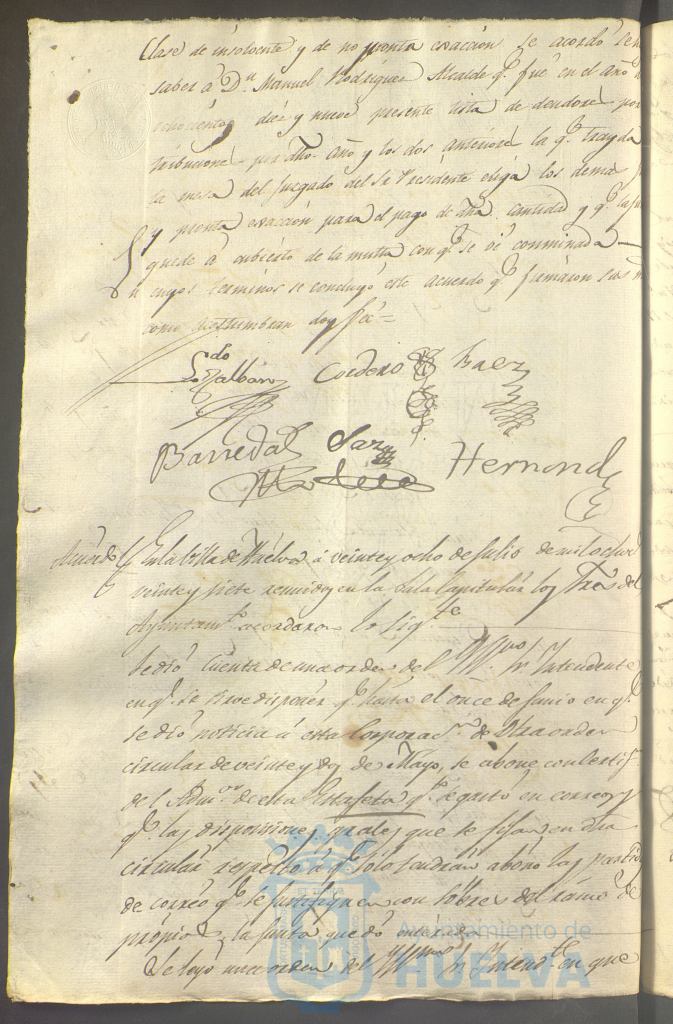 Clase de insolvente y de no pronta exaccion se acordo
saber á D.n Manuel Rodriguez Alcalde q.e fue en el año
ochocientos diez y nueve presente lista de deudores por
tribuciones por dho. año y los dos anteriores la q.e trayda
la mesa del Juzgado del Sr Presidente elija los demas
y pronta exaccion para el pago de dha. cantidad y q.e
quede á cubierto de la multa con q.e se ve conminada
en cuyos terminos se concluyó este acuerdo q.e firmaron sus
como acostumbran doy fee =
Ldo Galban Cordero Baez
Barreda Saz Hernand
Acuerdo En la Villa de Huelva á veinte y ocho de Julio de mil ochoc
veinte y siete reunidos en la Sala Capitular los Sres del
Ayuntam.to acordaron lo sig.te
Se dió cuenta de una orden del Sr. Intendente
en q.e se sirve disponer q.e hasta el once de Junio en q.e
se dió noticia á esta Corporac.n de otra orden
circular de veinte y dos de Mayo, se abone con certif
del Adm.or de esta Estafeta q.e se gastó en correos y
q.e las disposiciones grales que se fijan en dha
circular respecto á q.e solo tendran abono las partid
de correo q.e se justifiquen con sobres del ramo de
propios, la Junta quedó enterada
Se leyó una orden del Sr Intend.te en que
Ayuntamiento de
HUELVA